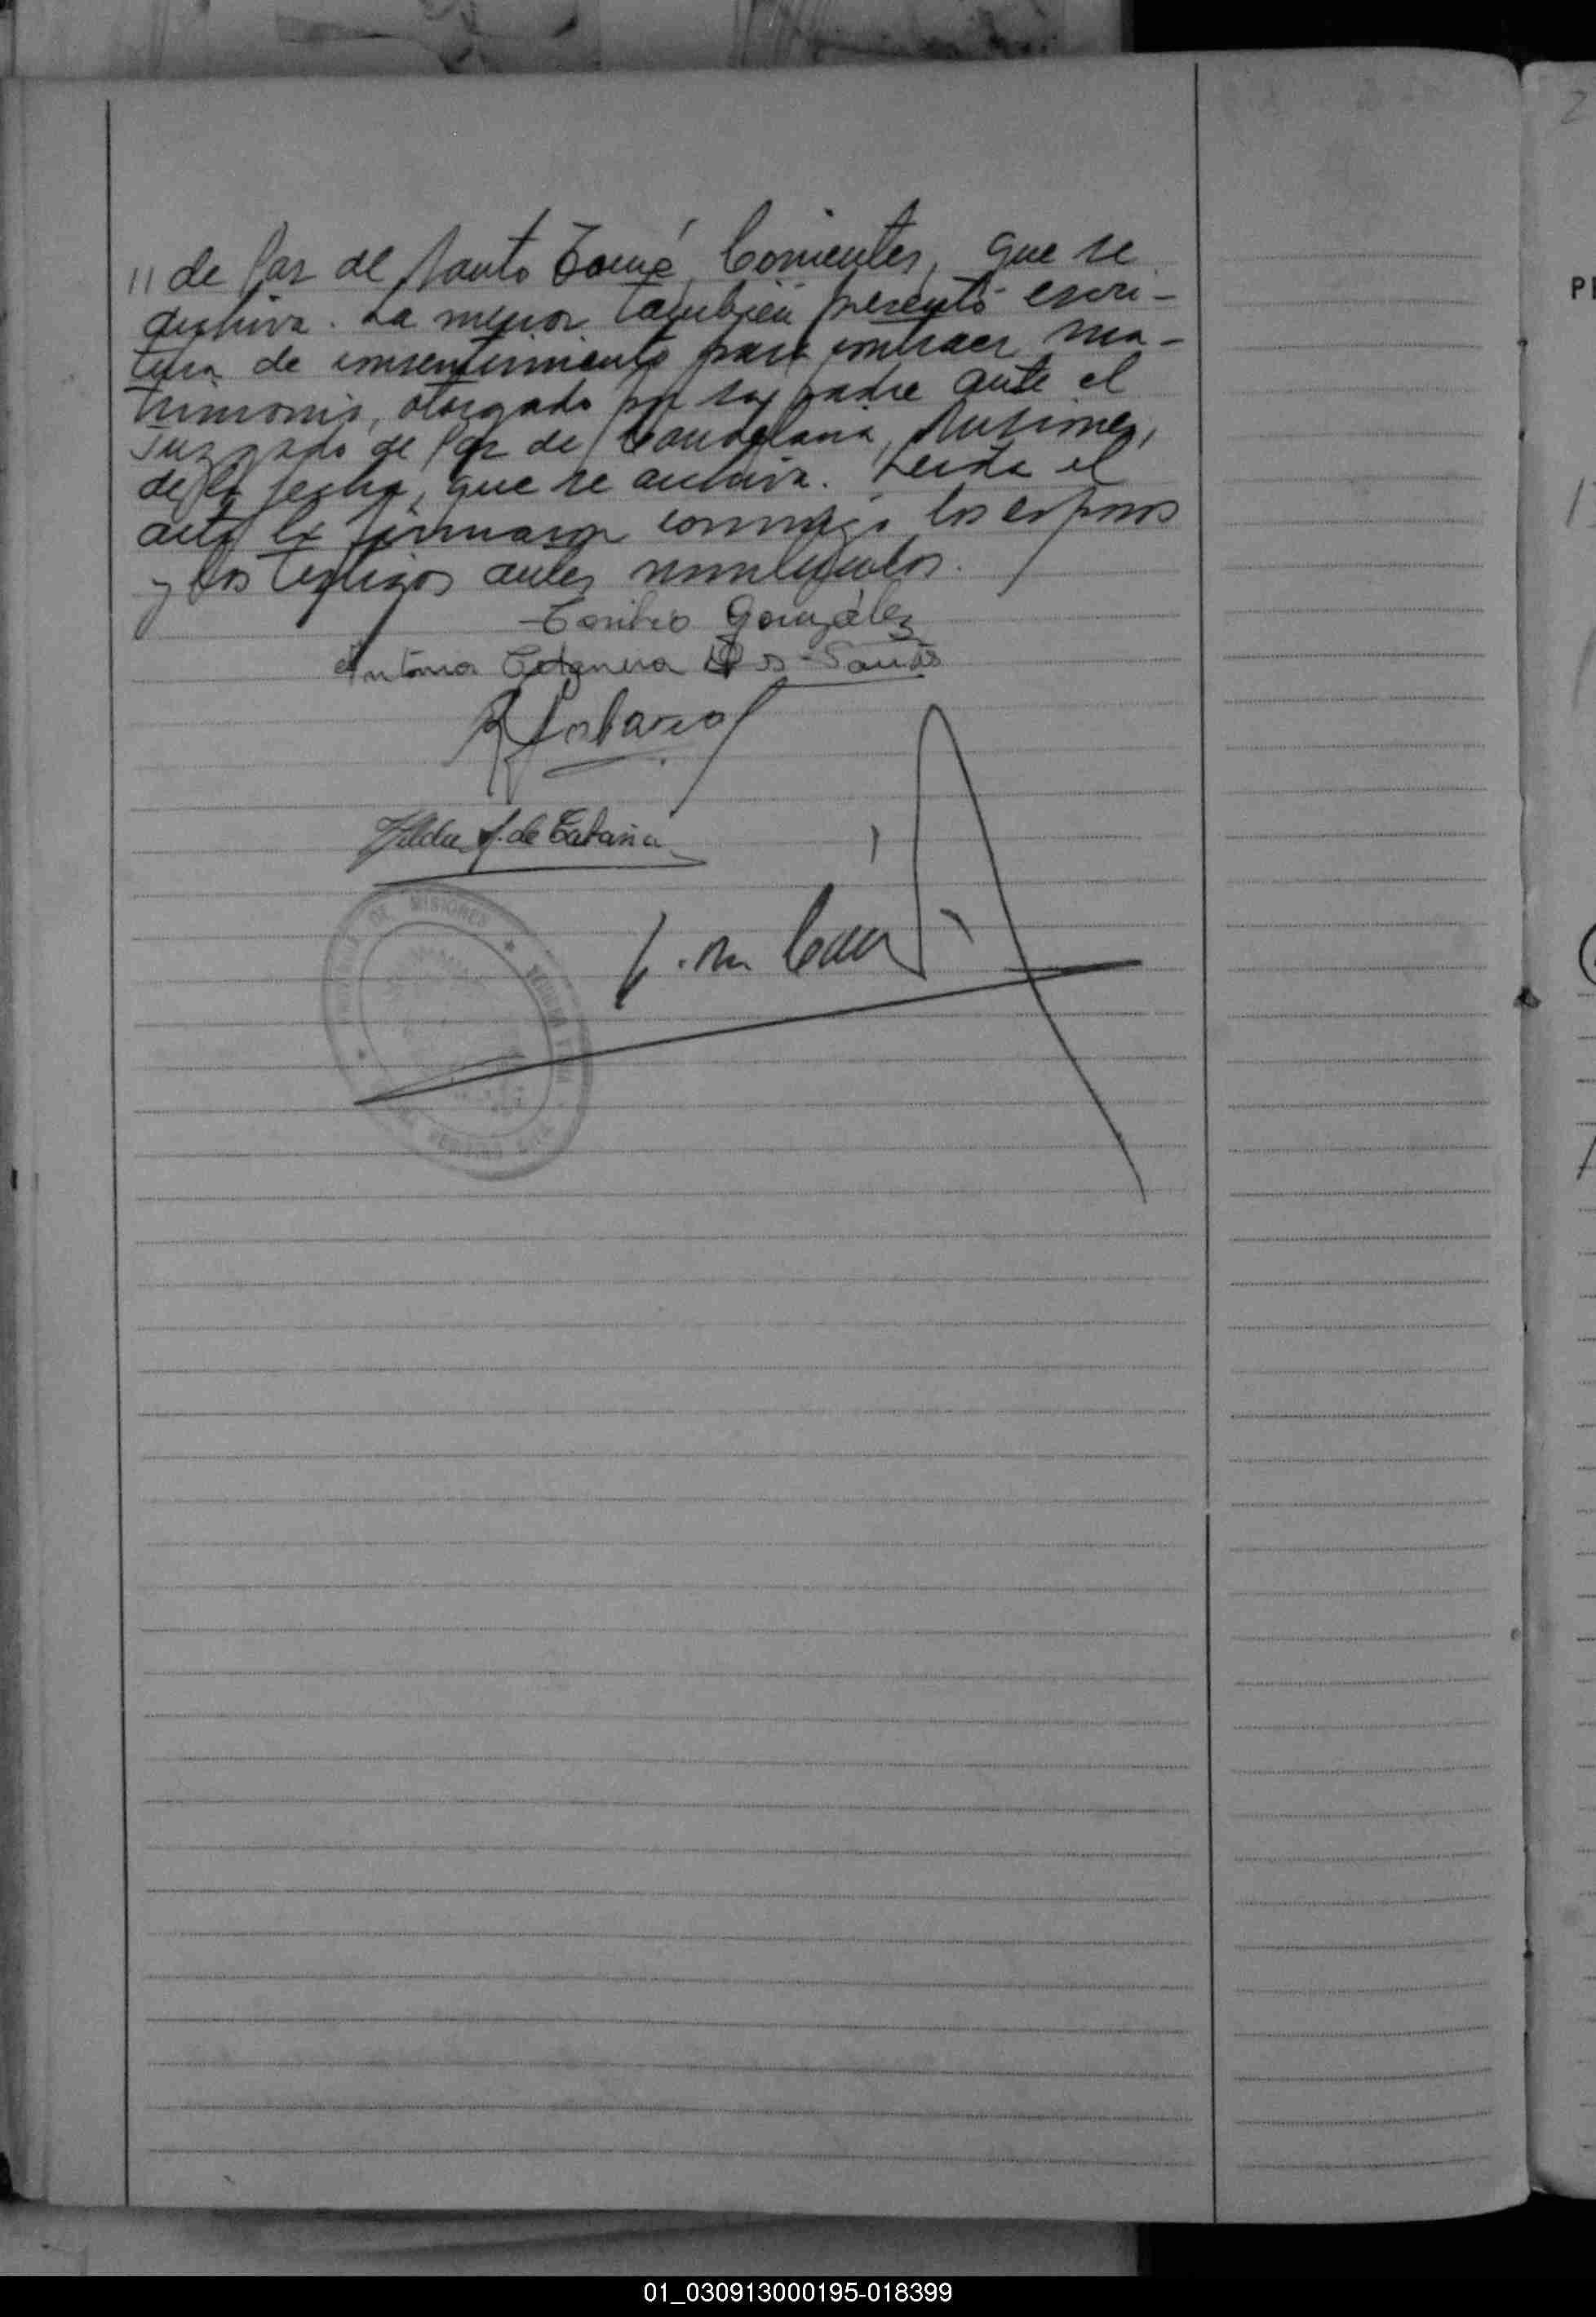 // de Paz de Santo Tomé, Corrientes, que se
archiva. La menor también presentó escri-
tura de consentimiento para contraer ma-
trimonio, otorgado por su padre ante el
Juzgado de Paz de Candelaria, Misiones,
de la fecha, que se archiva. Leida el
acta la firmaron conmigo los esposos
y los testigos antes nombrados.
Toribio González
Antonia Dos Santos
Hilda J. de Catania
DE MISIONES ★
01_030913000195-018399